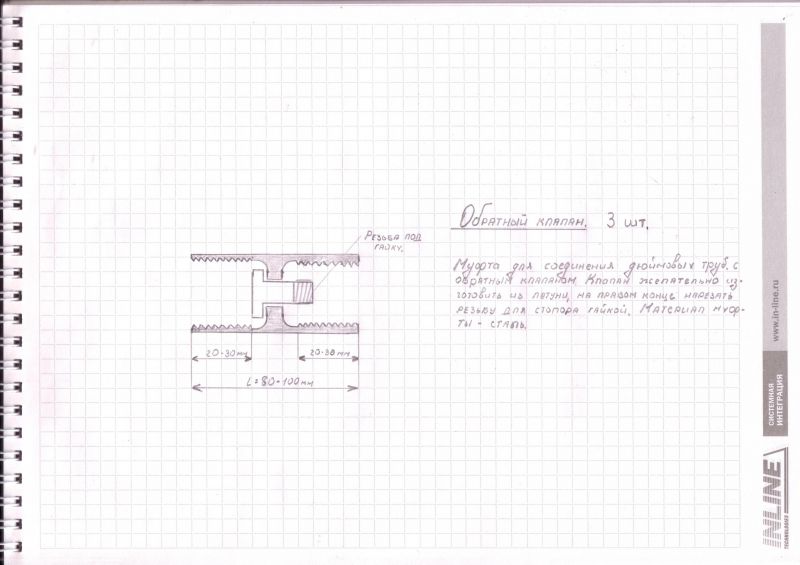 Обратный клапан. 3 шт.
Резьба под
гайку.
Муфта для соединения дюймовых труб с
обратным клапаном. Клапан желательно из-
готовить из латуни, на правом конце нарезать
резьбу для стопора гайкой. Материал муф-
ты - сталь.
20-30мм
20-30мм
L=80-100мм
www.in-line.ru
СИСТЕМНАЯ
ИНТЕГРАЦИЯ
INLINE
TECHNOLOGIES